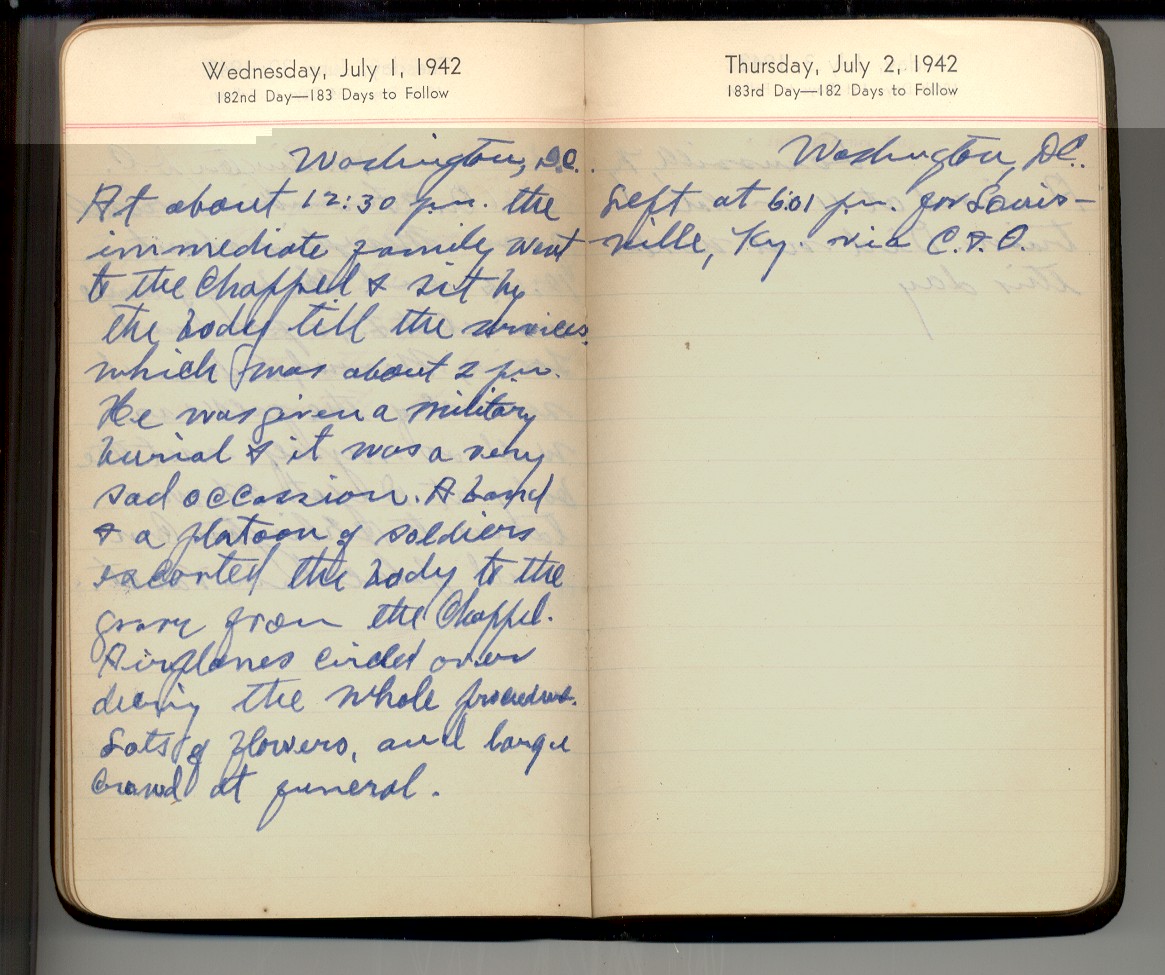 Wednesday, July 1, 1942
182nd Day—183 Days to Follow
Washington, D.C.
At about 12:30 p.m. the
immediate family went
to the Chappel & sit by
the body till the services
which was about 2 p.m.
He was given a military
burial & it was a very
sad occassion. A band
& a platoon of soldiers
escorted the body to the
grave from the Chappel.
Airplanes circled over
during the whole procedure.
Lots of flowers, and large
crowd at funeral.
Thursday, July 2, 1942
183rd Day—182 Days to Follow
Washington, DC.
Left at 6:01 p.m. for Louis-
ville, Ky. via C. & O.